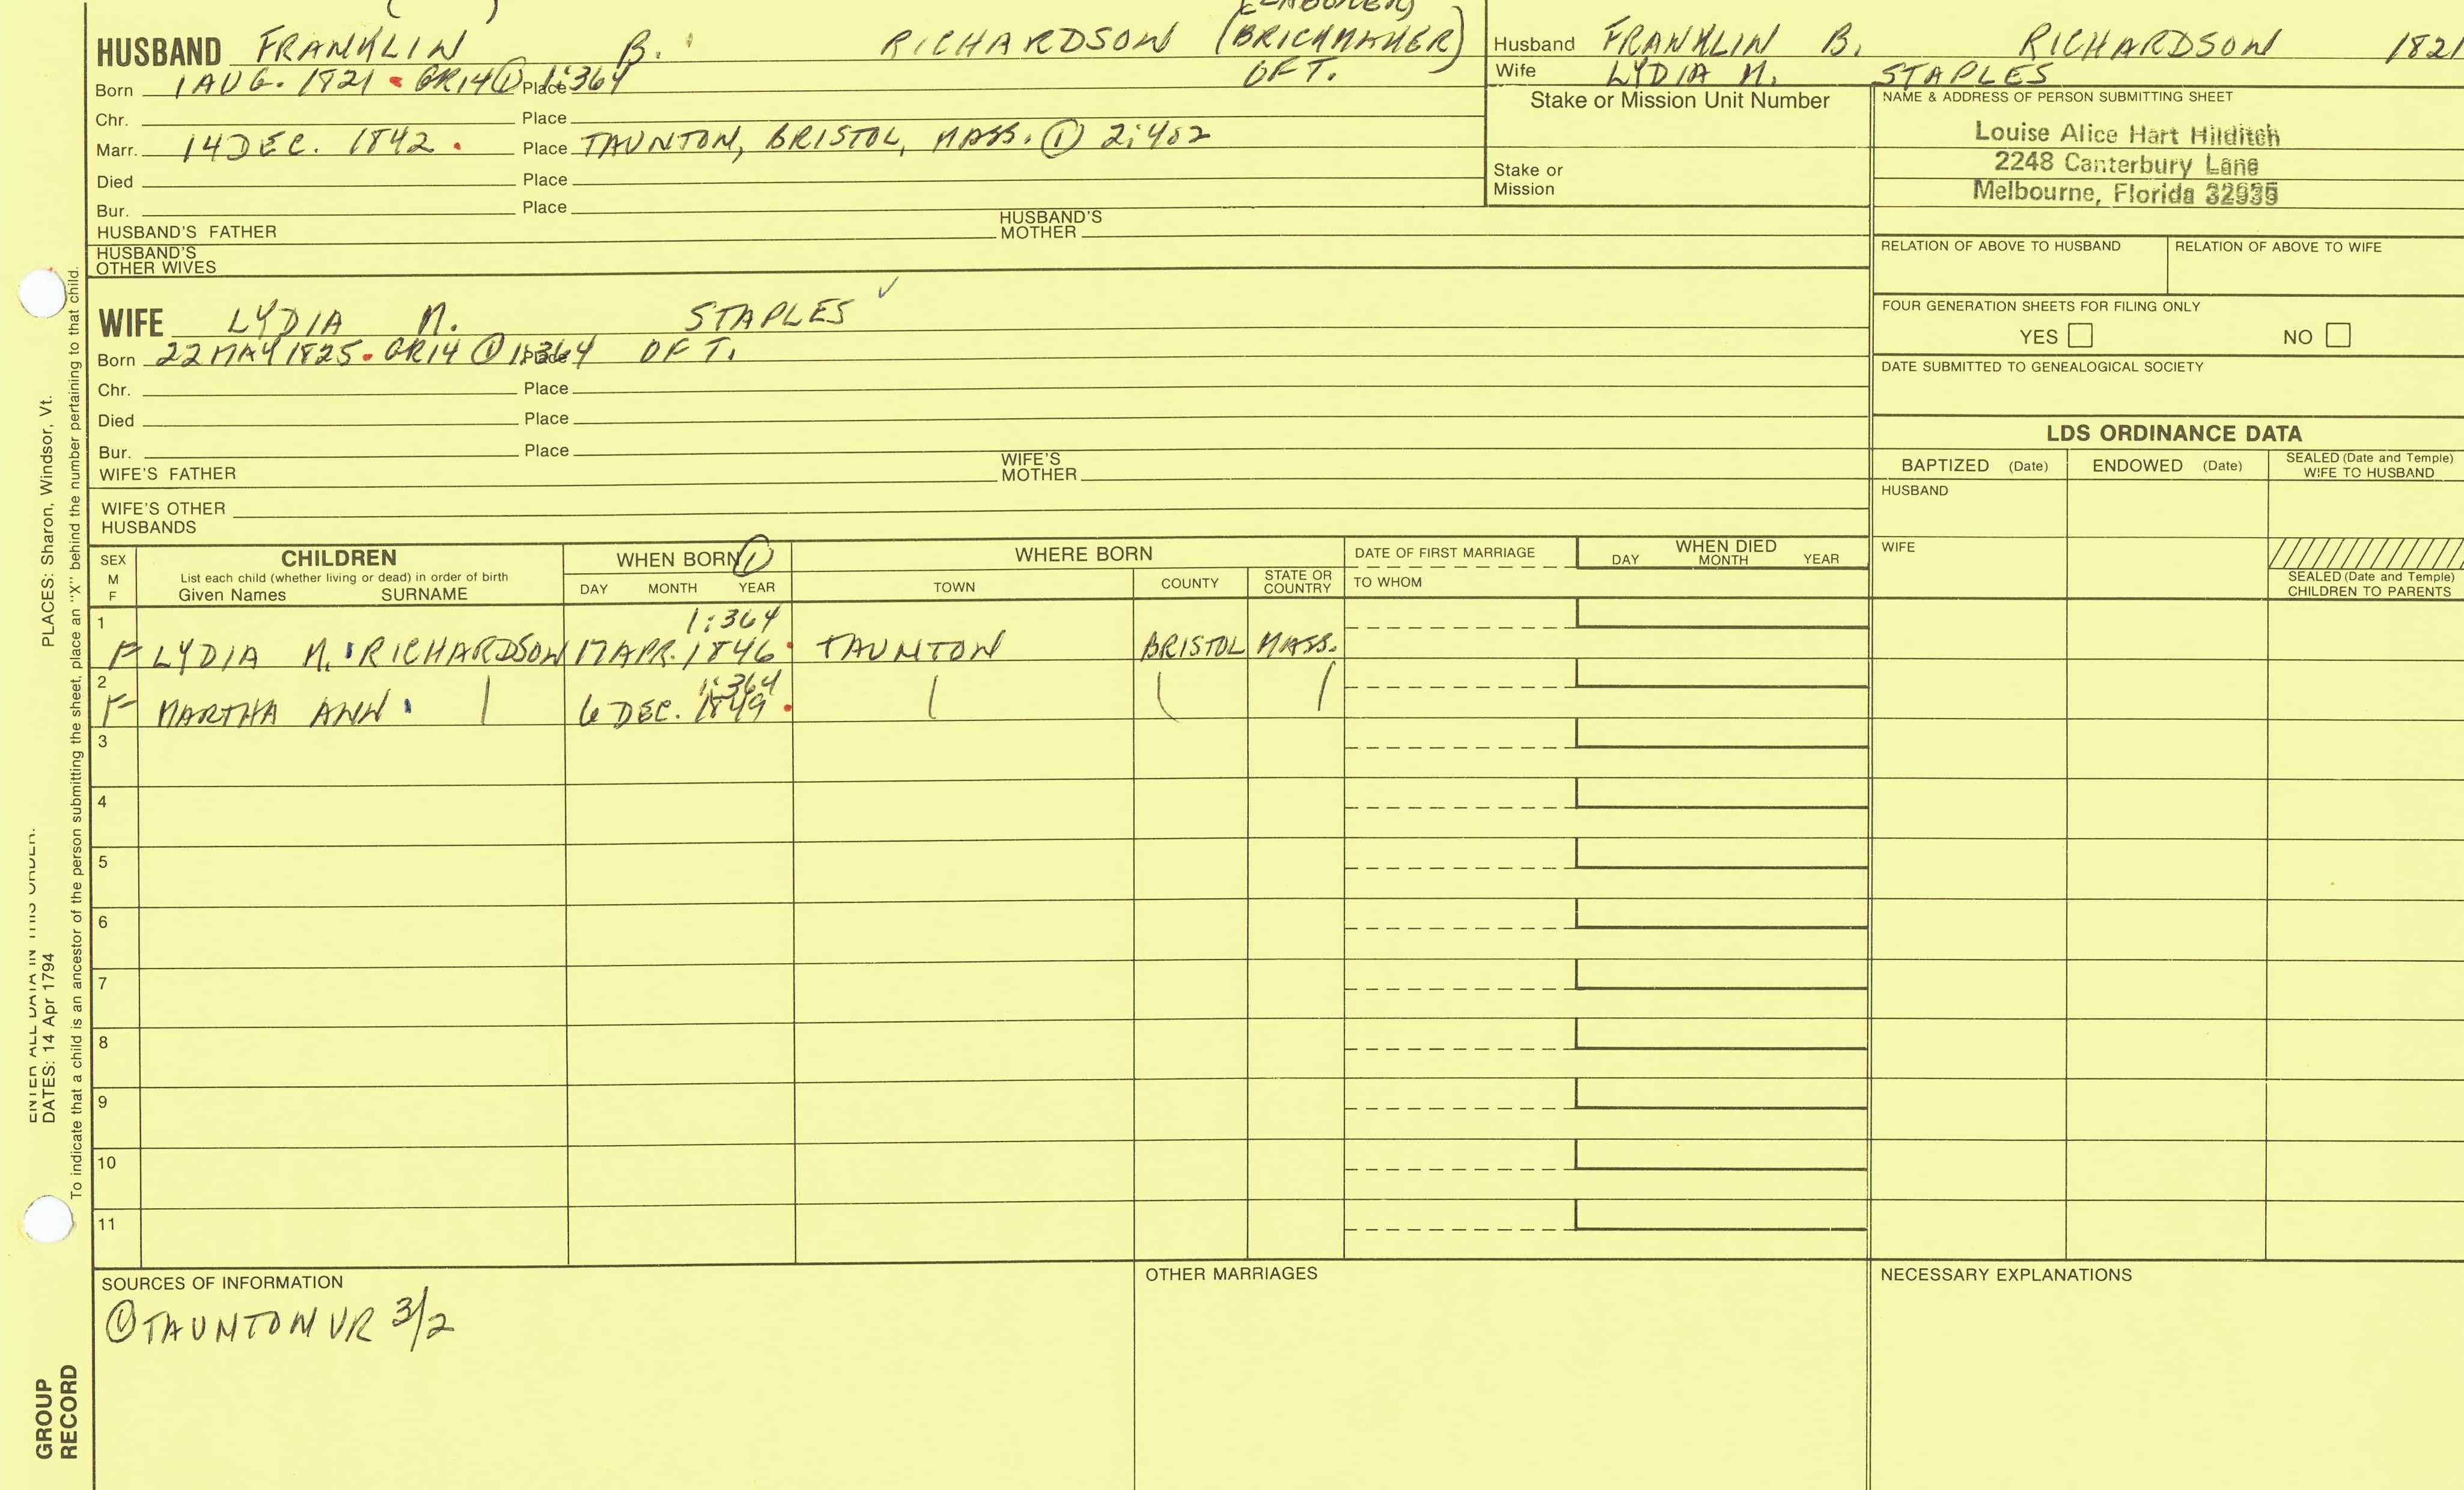 HUSBAND FRANKLIN B. RICHARDSON (BRICKMAKER)
Born 1 AUG. 1821 GR14 ① 1:364 Place OF T.
Chr. Place
Marr. 14 DEC. 1842 Place TAUNTON, BRISTOL, MASS. ① 2:402
Died Place
Bur. Place
HUSBAND'S FATHER HUSBAND'S MOTHER
HUSBAND'S OTHER WIVES
WIFE LYDIA M. STAPLES ✓
Born 22 MAY 1825 GR14 ① 1:364 Place OF T.
Chr. Place
Died Place
Bur. Place
WIFE'S FATHER WIFE'S MOTHER
WIFE'S OTHER HUSBANDS
Husband FRANKLIN B. RICHARDSON 1821
Wife LYDIA M. STAPLES
Stake or Mission Unit Number
Stake or Mission
NAME & ADDRESS OF PERSON SUBMITTING SHEET
Louise Alice Hart Hilditch
2248 Canterbury Lane
Melbourne, Florida 32935
RELATION OF ABOVE TO HUSBAND RELATION OF ABOVE TO WIFE
FOUR GENERATION SHEETS FOR FILING ONLY
YES NO
DATE SUBMITTED TO GENEALOGICAL SOCIETY
LDS ORDINANCE DATA
BAPTIZED (Date) ENDOWED (Date) SEALED (Date and Temple) WIFE TO HUSBAND
HUSBAND
WIFE
SEALED (Date and Temple) CHILDREN TO PARENTS
SEX M F CHILDREN WHEN BORN ① WHERE BORN DATE OF FIRST MARRIAGE WHEN DIED
List each child (whether living or dead) in order of birth
Given Names SURNAME DAY MONTH YEAR TOWN COUNTY STATE OR COUNTRY TO WHOM DAY MONTH YEAR
1 1:364
F LYDIA M. RICHARDSON 17 APR. 1846 TAUNTON BRISTOL MASS.
2 1:364
F MARTHA ANN 6 DEC. 1849
3
4
5
6
7
8
9
10
11
SOURCES OF INFORMATION OTHER MARRIAGES NECESSARY EXPLANATIONS
① TAUNTON VR 3/2
ENTER ALL DATA IN THIS ORDER:
DATES: 14 Apr 1794 PLACES: Sharon, Windsor, Vt.
To indicate that a child is an ancestor of the person submitting the sheet, place an "X" behind the number pertaining to that child.
GROUP RECORD